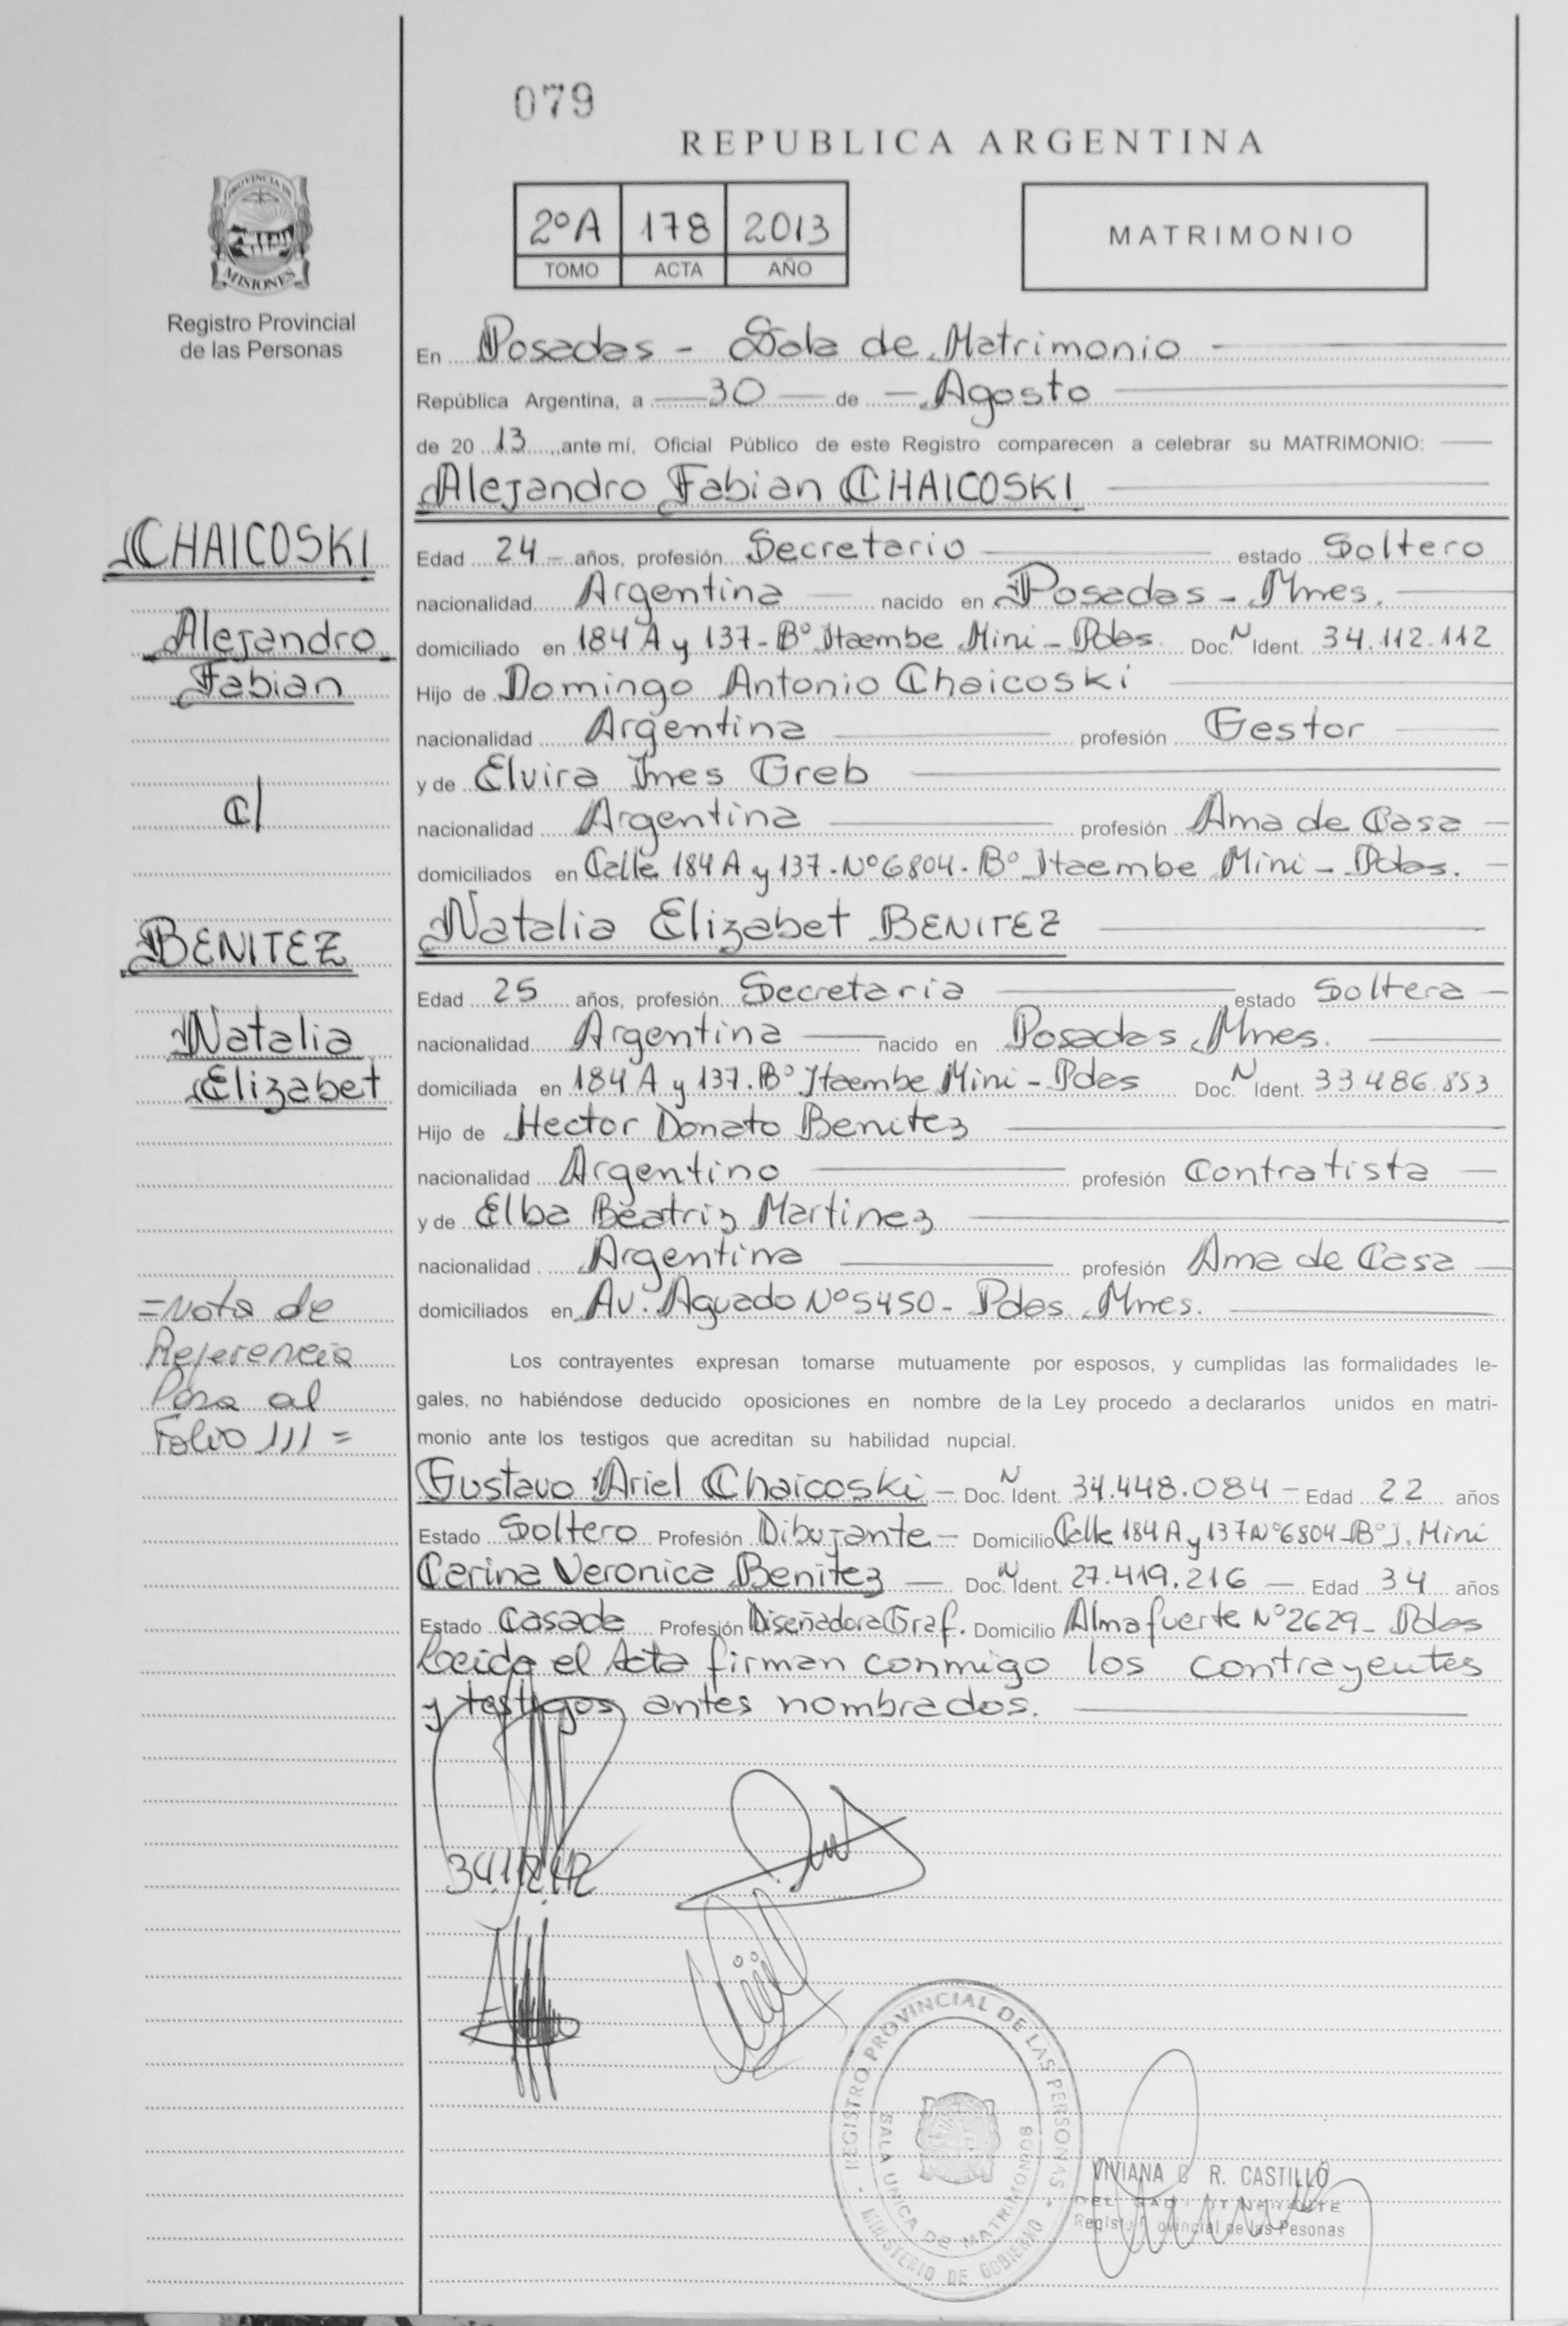 079
REPUBLICA ARGENTINA
PROVINCIA DE
MISIONES
Registro Provincial
de las Personas
2ºA 178 2013
TOMO ACTA AÑO
MATRIMONIO
En Posadas - Sala de Matrimonio
República Argentina, a 30 de Agosto
de 20 13 ante mí, Oficial Público de este Registro comparecen a celebrar su MATRIMONIO:
Alejandro Fabian CHAICOSKI
CHAICOSKI
Alejandro
Fabian
c/
BENITEZ
Natalia
Elizabet
=Nota de
Referencia
Pasa al
Folio 111=
Edad 24 años, profesión Secretario estado Soltero
nacionalidad Argentina nacido en Posadas - Mnes.
domiciliado en 184 A y 137 - Bº Itaembe Mini - Pdas. Doc. N Ident. 34.112.112
Hijo de Domingo Antonio Chaicoski
nacionalidad Argentina profesión Gestor
y de Elvira Ines Greb
nacionalidad Argentina profesión Ama de Casa
domiciliados en Calle 184 A y 137 - Nº 6804 - Bº Itaembe Mini - Pdas.
Natalia Elizabet BENITEZ
Edad 25 años, profesión Secretaria estado Soltera
nacionalidad Argentina nacido en Posadas, Mnes.
domiciliada en 184 A y 137. Bº Itaembe Mini - Pdas Doc. N Ident. 33.486.853
Hijo de Hector Donato Benitez
nacionalidad Argentino profesión Contratista
y de Elba Beatriz Martinez
nacionalidad Argentina profesión Ama de Casa
domiciliados en Av. Aguado Nº 5450 - Pdas. Mnes.
Los contrayentes expresan tomarse mutuamente por esposos, y cumplidas las formalidades le-
gales, no habiéndose deducido oposiciones en nombre de la Ley procedo a declararlos unidos en matri-
monio ante los testigos que acreditan su habilidad nupcial.
Gustavo Ariel Chaicoski - Doc. N Ident. 34.448.084 - Edad 22 años
Estado Soltero Profesión Dibujante - Domicilio Calle 184 A y 137 Nº 6804 - Bº I. Mini
Carina Veronica Benitez - Doc. N Ident. 27.419.216 - Edad 34 años
Estado Casada Profesión Diseñadora Graf. Domicilio Almafuerte Nº 2629 - Pdas
Leida el Acta firman conmigo los contrayentes
y testigos antes nombrados.
34.112.112
REGISTRO PROVINCIAL DE LAS PERSONAS
SALA UNICA DE MATRIMONIOS
MINISTERIO DE GOBIERNO
VIVIANA R. CASTILLO
de las Pesonas